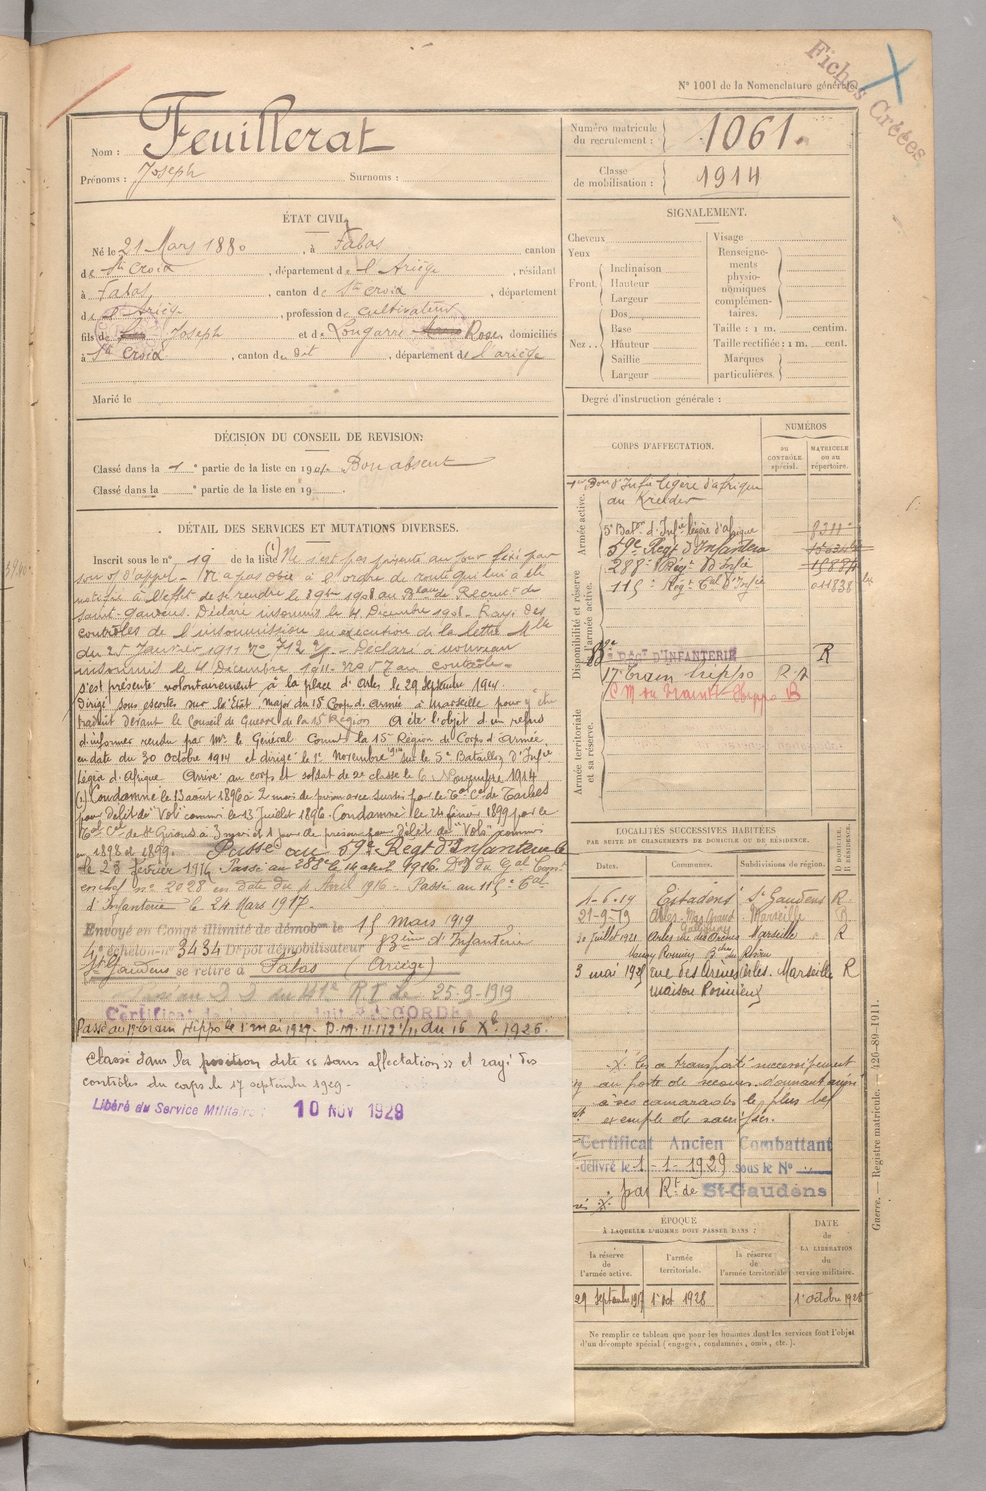 Fiches Créées
N° 1001 de la Nomenclature générale
Nom : Feuillerat
Prénoms : Joseph Surnoms :
Numéro matricule du recrutement : 1061.
Classe de mobilisation : 1914
ÉTAT CIVIL
Né le 21 Mars 1880, à Fabas canton
de Ste Croix, département de l'Ariège, résidant
à Fabas, canton de Ste Croix, département
de l'Ariège, profession de cultivateur
fils de Joseph et de Longarre Rose, domiciliés
à Ste Croix, canton de dit, département de l'ariège
Marié le
SIGNALEMENT.
Cheveux
Yeux
Front. Inclinaison
Hauteur
Largeur
Nez.. Dos
Base
Hauteur
Saillie
Largeur
Visage
Renseignements physionomiques complémentaires.
Taille : 1 m. centim.
Taille rectifiée : 1 m. cent.
Marques particulières.
Degré d'instruction générale :
DÉCISION DU CONSEIL DE REVISION:
Classé dans la 1e partie de la liste en 190 Bon absent
Classé dans la e partie de la liste en 19 .
DÉTAIL DES SERVICES ET MUTATIONS DIVERSES.
Inscrit sous le n° 19 de la liste (1) Ne s'est pas présenté au jour fixé par
son of d'appel - N'a pas obéi à l'ordre de route qui lui a été
notifié à l'effet de se rendre le 8 9bre 1901 au Recrut de
Saint-Gaudens. Déclaré insoumis le 4 Décembre 1901. Rayé des
contrôles de l'insoumission en exécution de la lettre Mlle
du 25 Janvier 1911 n° 712 - Déclaré à nouveau
insoumis le 4 Décembre 1911.
s'est présenté volontairement à la place d'Arles le 29 Septembre 1914.
Dirigé sous escorte sur l'Etat major du 15e Corps d'Armée à Marseille pour y être
traduit devant le Conseil de Guerre de la 15e Région A été l'objet d'un refus
d'informer rendu par Mr le Général Commt la 15e Région de Corps d'Armée
en date du 30 Octobre 1914 et dirigé le 1er Novembre 914 sur le 5e Bataillon d'Infie
Légère d'Afrique Arrivé au corps et soldat de 2e classe le 6 Novembre 1914
(1) Condamné le 13 août 1896 à 2 mois de prison avec sursis par le Tal Cel de Tarbes
pour délit de "Vol" commis le 13 Juillet 1896. Condamné le 24 février 1899 par le
Tal Cel de St Girons à 3 mois et 1 jour de prison pour délit de "Vols" commis
en 1898 et 1899. Passé au 59e Regt d'Infanterie
le 23 février 1916 Passé au 288e le 14 avril 1916. Don du Gal Comt
en chef n° 2028 en date du 4 Avril 1916 - Passé au 115e Cal
d'Infanterie le 24 Mars 1917.
Envoyé en Congé illimité de démobon le 15 mars 1919
4e échelon n° 3434 Dépôt démobilisateur 83ème d'Infanterie
St Gaudens se retire à Fabas (Ariège)
Passé au D.D. du 141e R.I. Le 25-9-1919
Certificat de bonne conduite ACCORDÉ
Passé au 17e Train Hippo le 1er mai 1927. D.M. 11.112 1/11 du 16 Xe 1926.
Classé dans la position dite « sans affectation » et rayé des
contrôles du corps le 17 septembre 1929 -
Libéré du Service Militaire : 10 NOV 1929
CORPS D'AFFECTATION.
NUMÉROS
DU CONTRÔLE spécial.
MATRICULE DU AU répertoire.
Armée active.
1er Bon d'Infie légère d'afrique
au Kreider
5e Baton d'Infie légère d'afrique 8311
59e Regt d'Infanterie
288e Regt d'Infie 15884
115e Regt Cal d'Infie 011838
Disponibilité et réserve de l'armée active.
Regt D'INFANTERIE R
17e Train hippo
C M du Train Hippo B
Armée territoriale et sa réserve.
LOCALITÉS SUCCESSIVES HABITÉES
PAR SUITE DE CHANGEMENTS DE DOMICILE OU DE RÉSIDENCE.
D DOMICILE. R RÉSIDENCE.
Dates. Communes. Subdivisions de région.
1-6-14 Estadens St Gaudens R
21-9-19 Arles Mas Grand Galignan Marseille R
30 juillet 1921 Arles rue des Arènes Marseille R
3 mai 1925 rue des Arènes Arles. Marseille R
maison Roumieux
les a transporté successivement
au poste de secours. Donnant ainsi
à ses camarades le plus bel
exemple de sacrifice.
Certificat Ancien Combattant
délivré le 1-1-1929 sous le N°
par Rt de St-Gaudens
ÉPOQUE
À LAQUELLE L'HOMME DOIT PASSER DANS :
la réserve de l'armée active.
l'armée territoriale.
la réserve de l'armée territoriale
DATE de LA LIBÉRATION du service militaire.
29 septembre 1917 1er oct 1928 1er octobre 1928
Ne remplir ce tableau que pour les hommes dont les services font l'objet
d'un décompte spécial (engagés, condamnés, omis, etc.).
Guerre. — Registre matricule. — 426-89-1911.